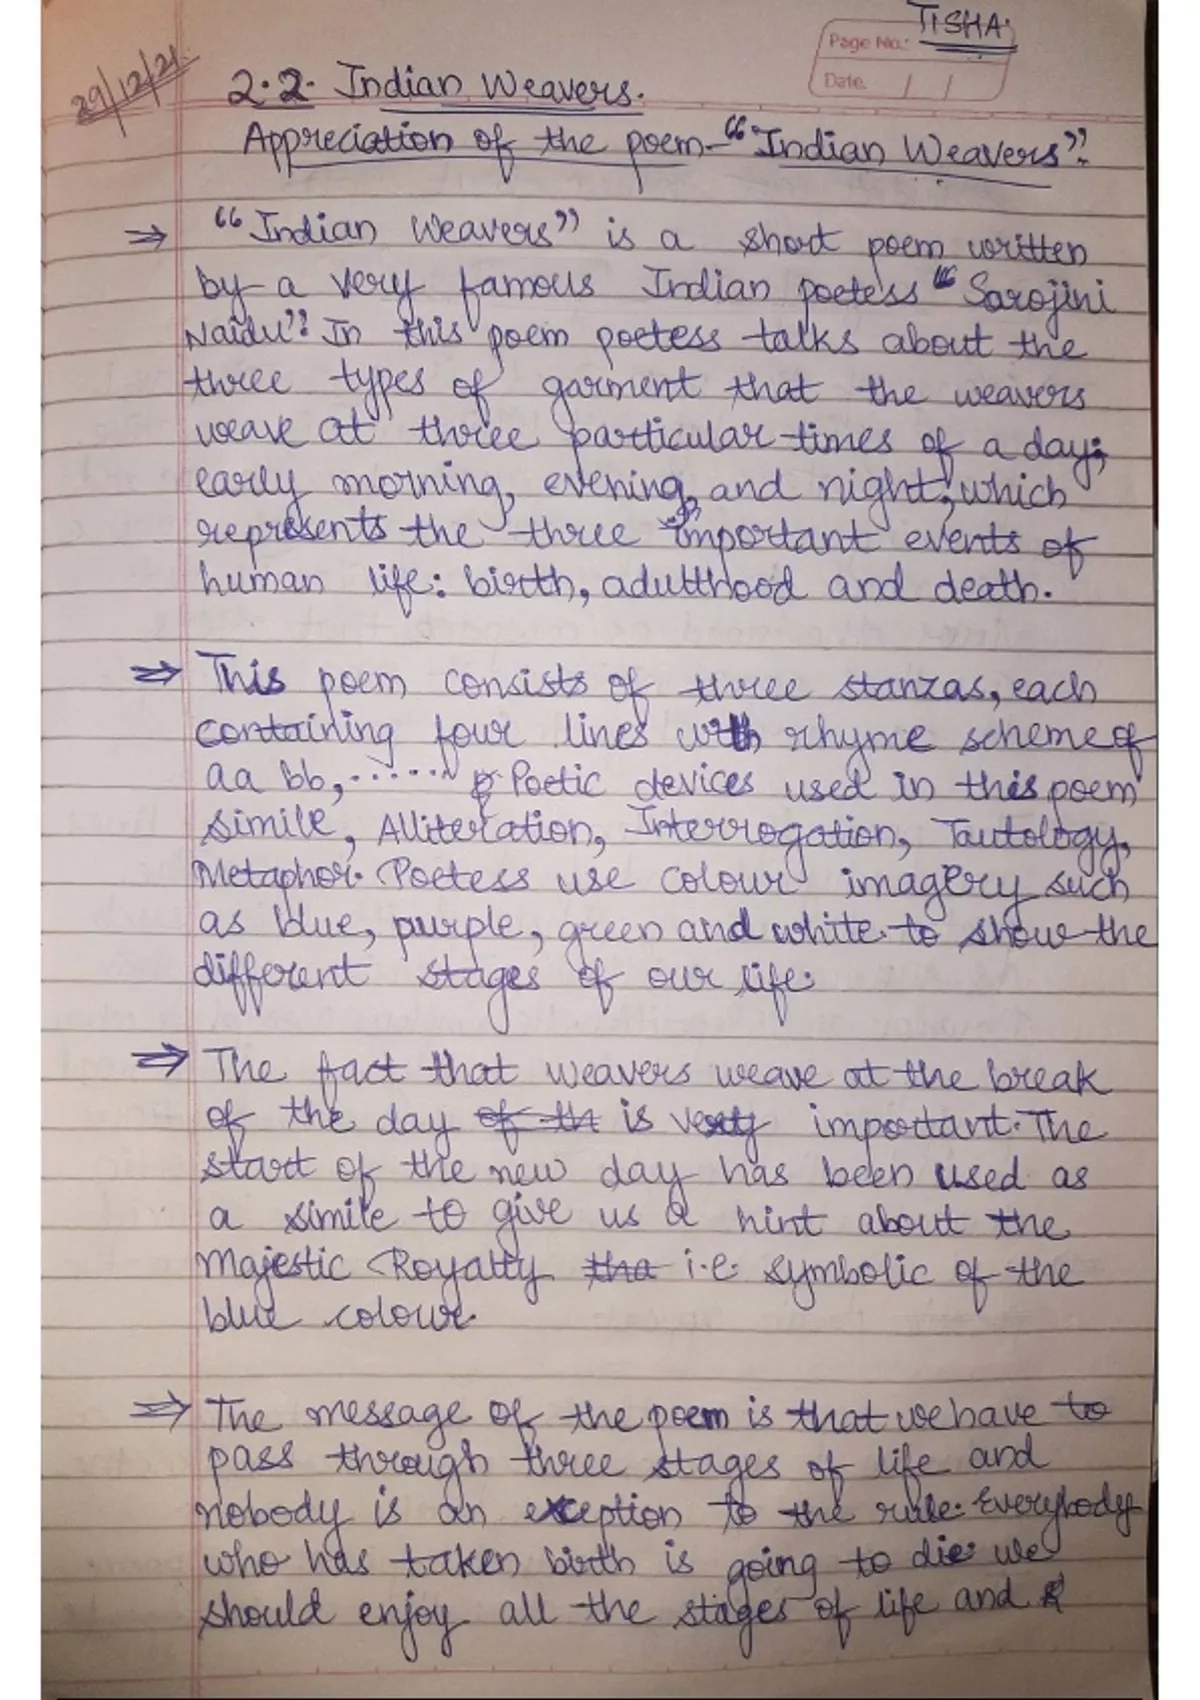 TISHA.
Page No.:
Date. / /
29/12/21.
2.2. Indian Weavers.
Appreciation of the poem-"Indian Weavers".
⇒ "Indian Weavers" is a short poem written
by a very famous Indian poetess "Sarojini
Naidu". In this poem poetess talks about the
three types of garment that the weavers
weave at three particular times of a day;
early morning, evening, and night, which
represents the three important events of
human life: birth, adultthood and death.
⇒ This poem consists of three stanzas, each
containing four lines with rhyme scheme of
aa bb,...... Poetic devices used in this poem
simile, Alliteration, Interrogation, Tautology,
Metaphor. Poetess use colour imagery such
as blue, purple, green and white to show the
different stages of our life.
⇒ The fact that weavers weave at the break
of the day of th is very important. The
start of the new day has been used as
a simile to give us a hint about the
Majestic Royalty tha i.e. symbolic of the
blue colour.
⇒ The message of the poem is that we have to
pass through three stages of life and
nobody is an exception to the rule. Everybody
who has taken birth is going to die. We
should enjoy all the stages of life and